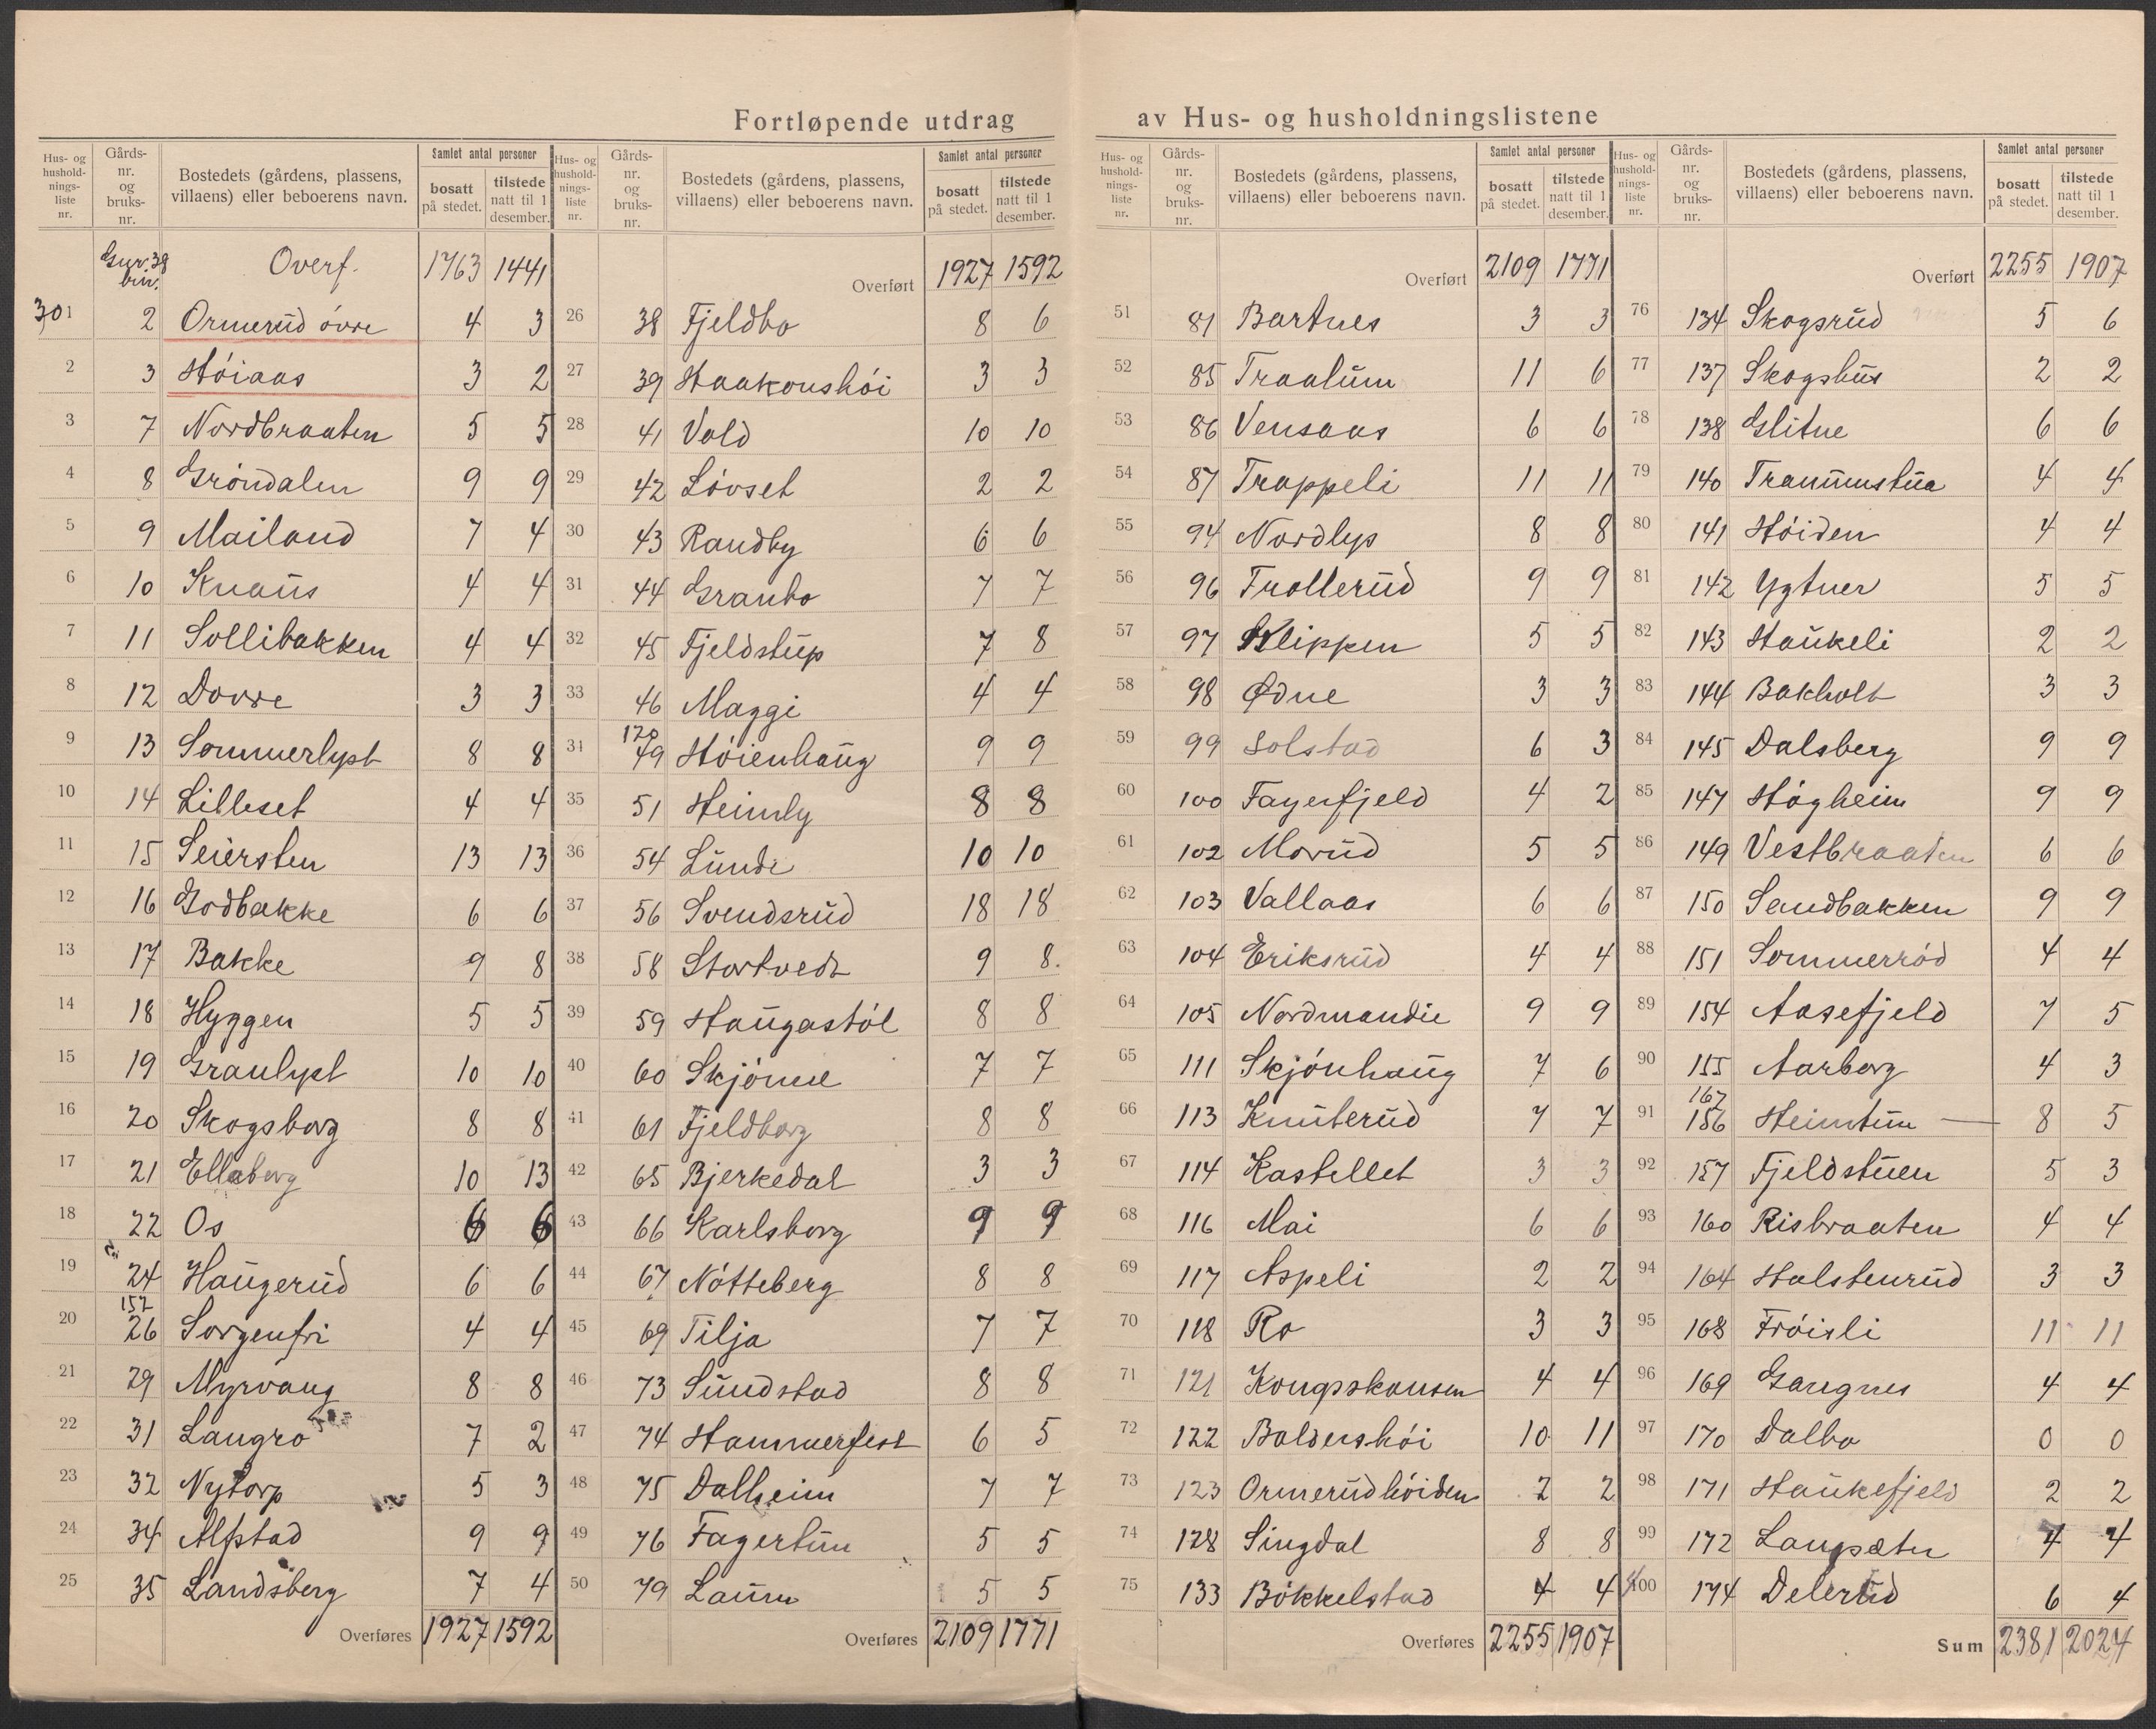 Fortløpende utdrag av Hus- og husholdningslistene
Hus- og hushold-nings-liste nr. | Gårds-nr. og bruks-nr. | Bostedets (gårdens, plassens, villaens) eller beboerens navn. | Samlet antal personer | bosatt på stedet. | tilstede natt til 1 desember.
Gnr. 38 bnr. Overf. 1763 1441
301 2 Ormerud övre 4 3
2 3 Höiaas 3 2
3 7 Nordbraaten 5 5
4 8 Gröndalen 9 9
5 9 Mailand 7 4
6 10 Knaus 4 4
7 11 Sollibakken 4 4
8 12 Dovre 3 3
9 13 Sommerlyst 8 8
10 14 Lilleset 4 4
11 15 Seiersten 13 13
12 16 Godbakke 6 6
13 17 Bakke 9 8
14 18 Hyggen 5 5
15 19 Granlyst 10 10
16 20 Skogsborg 8 8
17 21 Ellaberg 10 13
18 22 Os 6 6
19 24 Haugerud 6 6
20 152 26 Sorgenfri 4 4
21 29 Myrvang 8 8
22 31 Langro 7 2
23 32 Nytorp 5 3
24 34 Alfstad 9 9
25 35 Landsberg 7 4
Overføres 1927 1592
Hus- og hushold-nings-liste nr. | Gårds-nr. og bruks-nr. | Bostedets (gårdens, plassens, villaens) eller beboerens navn. | Samlet antal personer | bosatt på stedet. | tilstede natt til 1 desember.
Overført 1927 1592
26 38 Fjeldbo 8 6
27 39 Haakonshöi 3 3
28 41 Vold 10 10
29 42 Lövset 2 2
30 43 Randby 6 6
31 44 Granbo 7 7
32 45 Fjeldstup 7 8
33 46 Maggi 4 4
34 120 49 Höienhaug 9 9
35 51 Heimly 8 8
36 54 Lunde 10 10
37 56 Svendsrud 18 18
38 58 Stortvedt 9 8.
39 59 Haugastöl 8 8
40 60 Skjönne 7 7
41 61 Fjeldborg 8 8
42 65 Bjerkedal 3 3
43 66 Karlsborg 9 9
44 67 Nötteberg 8 8
45 69 Tilja 7 7
46 73 Sundstad 8 8
47 74 Hammerfest 6 5
48 75 Dalheim 7 7
49 76 Fagertun 5 5
50 79 Laum 5 5
Overføres 2109 1771
Hus- og hushold-nings-liste nr. | Gårds-nr. og bruks-nr. | Bostedets (gårdens, plassens, villaens) eller beboerens navn. | Samlet antal personer | bosatt på stedet. | tilstede natt til 1 desember.
Overført 2109 1771
51 81 Bartnes 3 3
52 85 Traalum 11 6
53 86 Vensaas 6 6
54 87 Trappeli 11 11
55 94 Nordlys 8 8
56 96 Trollerud 9 9
57 97 Klippen 5 5
58 98 Ødne 3 3
59 99 Solstad 6 3
60 100 Fagerfjeld 4 2
61 102 Morud 5 5
62 103 Vallaas 6 6
63 104 Eriksrud 4 4
64 105 Nordmandie 9 9
65 111 Skjönhaug 7 6
66 113 Knuterud 7 7
67 114 Kastellet 3 3
68 116 Mai 6 6
69 117 Aspeli 2 2
70 118 Ro 3 3
71 121 Kongskansen 4 4
72 122 Baldershöi 10 11
73 123 Ormerudhöiden 2 2
74 128 Singdal 8 8
75 133 Bökkelstad 4 4
Overføres 2255 1907
Hus- og hushold-nings-liste nr. | Gårds-nr. og bruks-nr. | Bostedets (gårdens, plassens, villaens) eller beboerens navn. | Samlet antal personer | bosatt på stedet. | tilstede natt til 1 desember.
Overført 2255 1907
76 134 Skogsrud 5 6
77 137 Skogshus 2 2
78 138 Glitne 6 6
79 140 Tranumstua 4 4
80 141 Höiden 4 4
81 142 Ygtner 5 5
82 143 Haukeli 2 2
83 144 Bakholt 3 3
84 145 Dalsberg 9 9
85 147 Högheim 9 9
86 149 Vestbraaten 6 6
87 150 Sandbakken 9 9
88 151 Sommerröd 4 4
89 154 Aasefjeld 7 5
90 155 Aarborg 4 3
91 167 156 Heimtun — 8 5
92 157 Fjeldstuen 5 3
93 160 Risbraaten 4 4
94 164 Halstenrud 3 3
95 168 Fröisli 11 11
96 169 Gangnes 4 4
97 170 Dalbo 0 0
98 171 Haukefjeld 2 2
99 172 Langsæter 4 4
400 174 Delerud 6 4
Sum 2381 2024